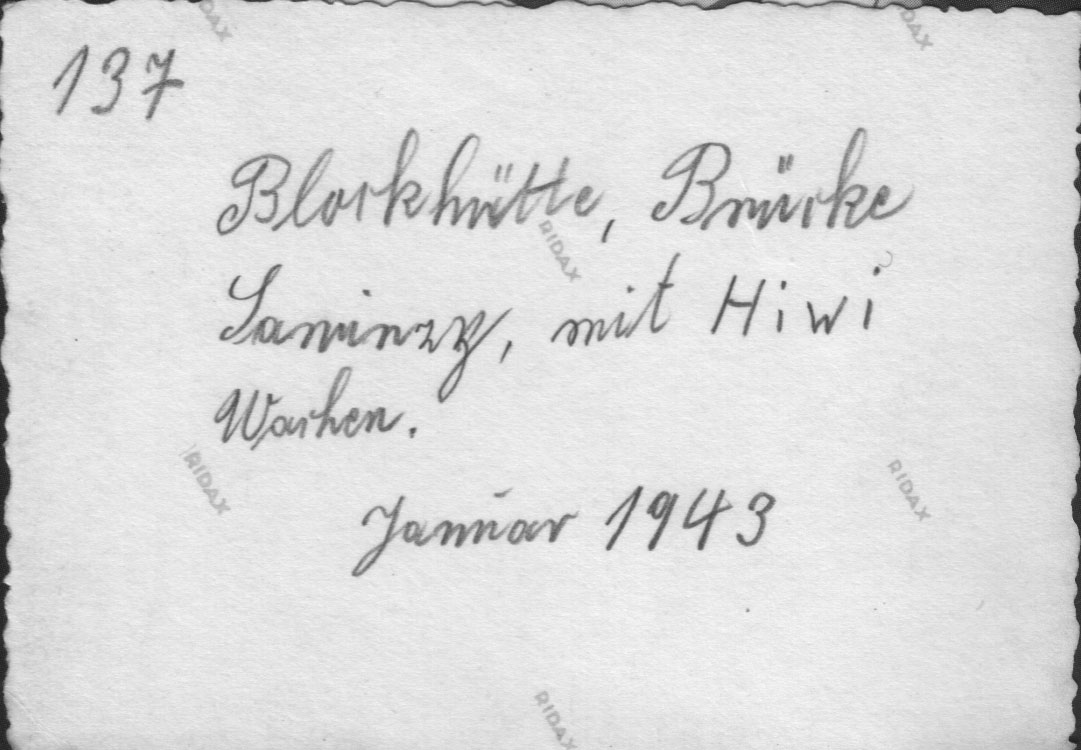 137
Blockhütte, Brücke
Saminzy, mit Hiwi
Wachen.
Januar 1943
RIDAX
RIDAX
RIDAX
RIDAX
RIDAX
RIDAX